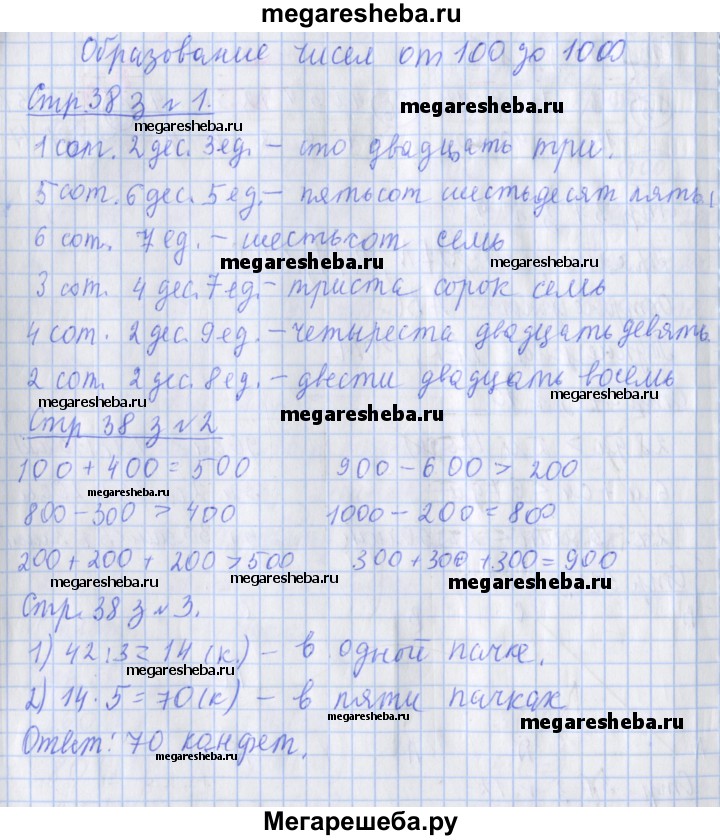 megaresheba.ru
Образование чисел от 100 до 1000
Стр. 38 з №1.
megaresheba.ru
megaresheba.ru
1 сот. 2 дес. 3 ед. – сто двадцать три.
5 сот. 6 дес. 5 ед. – пятьсот шестьдесят пять
6 сот. 7 ед. – шестьсот семь
megaresheba.ru
megaresheba.ru
3 сот. 4 дес. 7 ед. – триста сорок семь
4 сот. 2 дес. 9 ед. – четыреста двадцать девять.
2 сот. 2 дес. 8 ед. – двести двадцать восемь
megaresheba.ru
megaresheba.ru
megaresheba.ru
Стр 38 з №2
100 + 400 = 500 900 – 600 > 200
megaresheba.ru
800 – 300 > 400 1000 – 200 = 800
megaresheba.ru
200 + 200 + 200 > 500 300 + 300 + 300 = 900
megaresheba.ru
megaresheba.ru
megaresheba.ru
Стр. 38 з №3.
1) 42 : 3 = 14 (к.) – в одной пачке.
megaresheba.ru
2) 14 · 5 = 70 (к) – в пяти пачках
megaresheba.ru
megaresheba.ru
Ответ: 70 конфет.
megaresheba.ru
Мегарешеба.ру